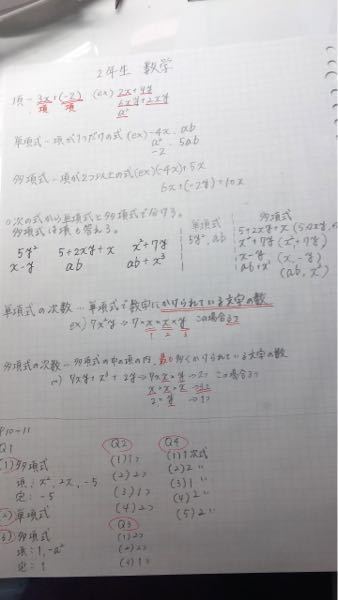 2年生 数学
項-3x+(-2) (ex) 2x+4y
項 項 6xy+2xy
a²
単項式-項が1つだけの式(ex)-4x、ab
a²、5ab
-2
多項式-項が2つ以上の式(ex)(-4x)+5x
6x+(-2y)+10x
○次の式から単項式と多項式で分ける。
多項式は項も答える。
5y² 5+2x+x x²+7y
x-y ab ab+x³
単項式
5y², ab
多項式
x²+7y(x², 7y)
x-y (x, -y)
ab+x³
(ab, x³)
単項式の次数…単項式で数中にかけられている文字の数
ex) 7x²y→7×x×x×y この場合3つ
1 2 3
多項式の次数…多項式の中の項の内、最も多くかけられている文字の数
x×x×x→3つ
2×y→1つ
P10-11
Q1
(1)多項式
項:x², 2x, -5
定:-5
(2)単項式
(3)多項式
項:1, -a²
定:1
Q2
(1)1つ
(2)2つ
(3)1つ
(4)2つ
Q3
(1)2つ
(2)2つ
(3)1つ
Q4
(1)1次式
(2)2〃
(3)1〃
(4)2〃
(5)2〃